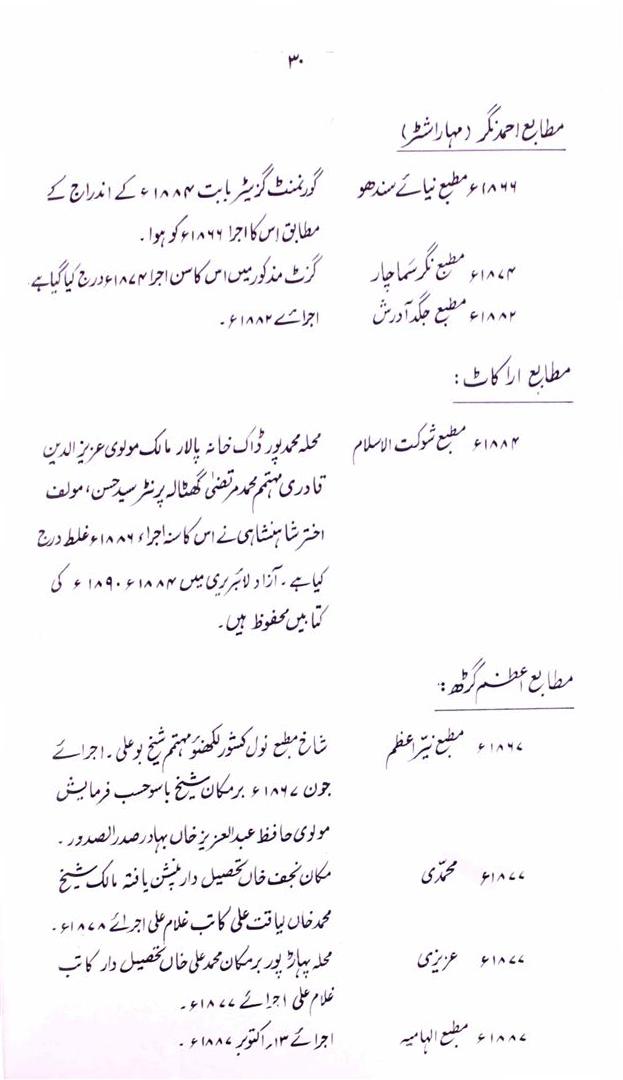 ۳۰
مطابع احمد نگر (مہاراشٹر)
۱۸۶۶ء مطبع نیائے سندھو گورنمنٹ گزیٹر بابت ۱۸۸۴ء کے اندراج کے
مطابق اس کا اجرا ۱۸۶۶ء کو ہوا۔
۱۸۷۴ء مطبع نگر سماچار گزٹ مذکور میں اس کا سن اجرا ۱۸۷۴ء درج کیا گیا ہے
۱۸۸۲ء مطبع جگد آدرش اجرائے ۱۸۸۲ء۔
مطابع اراکاٹ:
۱۸۸۴ء مطبع شوکت الاسلام محلہ محمد پور ڈاک خانہ پالار مالک مولوی عزیز الدین
قادری مہتمم محمد مرتضیٰ گھٹالہ پرنٹر سید حسن، مولف
اختر شاہنشاہی نے اس کا سنہ اجراء ۱۸۸۶ء غلط درج
کیا ہے۔ آزاد لائبریری میں ۱۸۸۴ء ۱۸۹۰ء کی
کتابیں محفوظ ہیں۔
مطابع اعظم گڑھ:
۱۸۶۷ء مطبع نیّر اعظم شاخ مطبع نول کشور لکھنؤ مہتمم شیخ بو علی۔ اجرائے
جون ۱۸۶۷ء بر مکان شیخ باسو حسب فرمایش
مولوی حافظ عبد العزیز خاں بہادر صدر الصدور۔
۱۸۷۷ء محمّدی مکان نجف خاں تحصیل دار پنشن یافتہ مالک شیخ
محمد خاں لیاقت علی کاتب غلام علی اجرائے ۱۸۷۸ء۔
۱۸۷۷ء عزیزی محلہ پہاڑ پور بر مکان محمد علی خاں تحصیل دار کاتب
غلام علی اجرائے ۱۸۷۷ء۔
۱۸۸۷ء مطبع الہامیہ اجرائے ۱۳؍ اکتوبر ۱۸۸۷ء۔